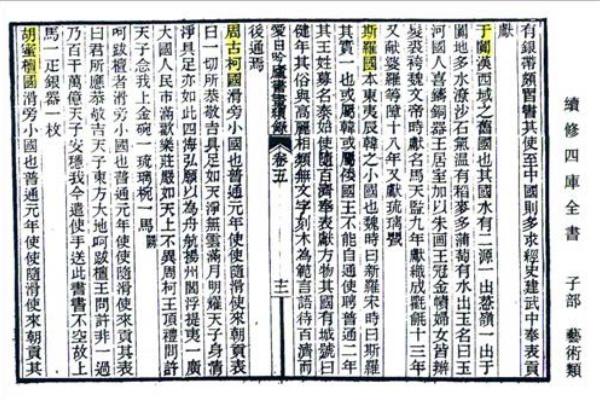 續修四庫全書 子部 藝術類
有銀帶頗習書其使至中國則多求經史建武中奉表貢
獻
于闐漢西域之舊國也其國水有二源一出葱嶺一出于
闐地多水潦沙石氣溫有稻麥多蒲萄有水出玉名曰玉
河國人喜鑄銅器王居室加以朱画王冠金幘婦女皆辮
髮裘袴魏文帝時獻名馬天監九年獻織成氍毹十三年
又獻婆羅等障十八年又獻琉璃罌
斯羅國本東夷辰韓之小國也魏時曰新羅宋時曰斯羅
其實一也或屬韓或屬倭國王不能自通使聘普通二年
其王姓募名泰始使隨百濟奉表獻方物其國有城號曰
健年其俗與高麗相類無文字刻木為範言語待百濟而
愛日吟廬書畫續錄 卷五 十二
後通焉
周古柯國滑旁小國也普通元年使使隨滑使來朝貢其表
曰一切所恭敬吉具足如天淨無雲滿月明耀天子身清
淨具足亦如此四海弘願以為舟航揚州閻浮提夷一廣
大國人民市滿歡樂莊嚴如天上不異周柯王頂禮問許
天子念我上金碗一琉璃椀一馬闕
呵跋檀者滑旁小國也普通元年使使隨滑使來朝貢其表
曰君所應恭敬吉天子東方大地呵跋檀王問許非一過
乃百千萬億天子安穩我今遣使手送此書書不空故上
馬一疋銀器一枚
胡蜜檀國滑旁小國也普通元年使使隨滑使來朝貢其